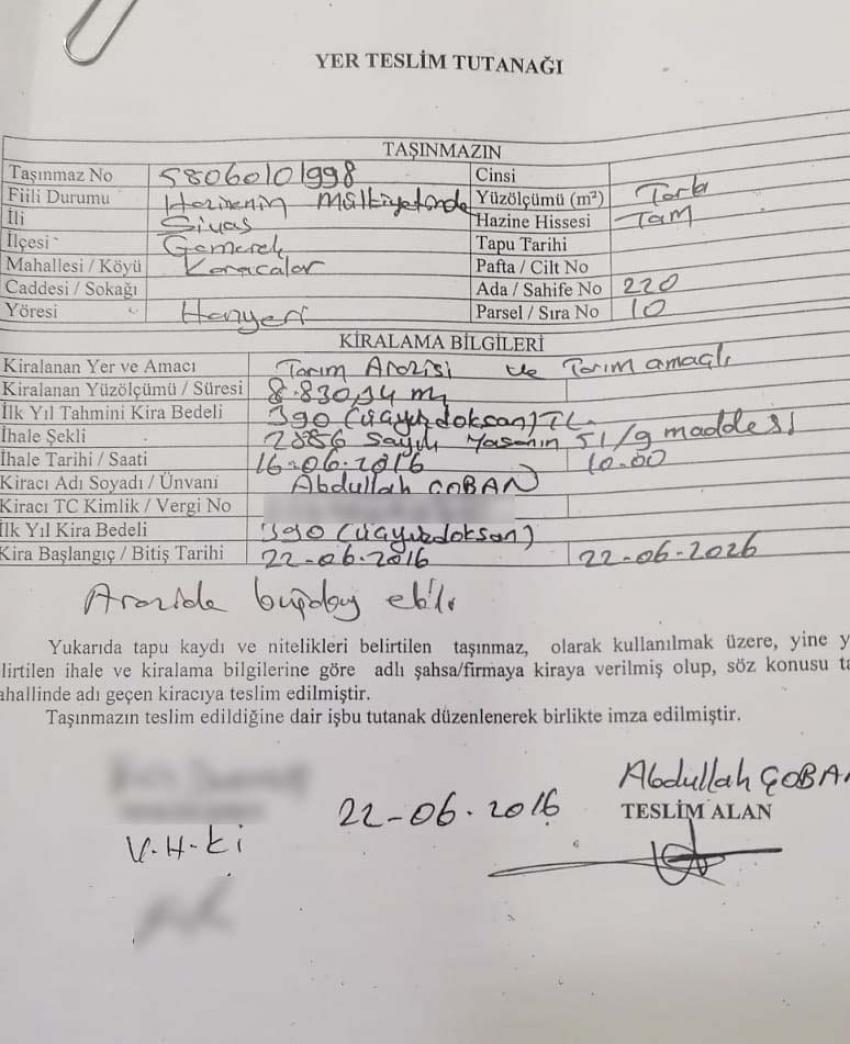 YER TESLİM TUTANAĞI
TAŞINMAZIN
Taşınmaz No 58060101998 Cinsi
Fiili Durumu Hazinenin Mülkiyetinde Yüzölçümü (m²) Tarla
İli Sivas Hazine Hissesi TAM
İlçesi Gemerek Tapu Tarihi
Mahallesi / Köyü Karacalar Pafta / Cilt No
Caddesi / Sokağı Ada / Sahife No 220
Yöresi Hanyeri Parsel / Sıra No 10
KİRALAMA BİLGİLERİ
Kiralanan Yer ve Amacı Tarım Arazisi ve Tarım amaçlı
Kiralanan Yüzölçümü / Süresi 8.830,94 m2
İlk Yıl Tahmini Kira Bedeli 390 (üçyüzdoksan) TL.
İhale Şekli 2886 sayılı yasanın 51/g maddesi
İhale Tarihi / Saati 16-06-2016 10.00
Kiracı Adı Soyadı / Ünvanı Abdullah ÇOBAN
Kiracı TC Kimlik / Vergi No
İlk Yıl Kira Bedeli 390 (üçyüzdoksan)
Kira Başlangıç / Bitiş Tarihi 22-06-2016 22-06-2026
Arazide buğday ekili
Yukarıda tapu kaydı ve nitelikleri belirtilen taşınmaz, olarak kullanılmak üzere, yine y
lirtilen ihale ve kiralama bilgilerine göre adlı şahsa/firmaya kiraya verilmiş olup, söz konusu ta
ahallinde adı geçen kiracıya teslim edilmiştir.
Taşınmazın teslim edildiğine dair işbu tutanak düzenlenerek birlikte imza edilmiştir.
Abdullah ÇOBAN
22-06-2016 TESLİM ALAN
V.H.Ki